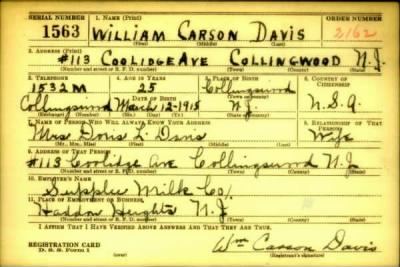 SERIAL NUMBER 1. NAME (Print) ORDER NUMBER
1563 WILLIAM CARSON DAVIS 2162
(First) (Middle) (Last)
2. ADDRESS (Print)
#113 COOLIDGE AVE COLLINGWOOD N.J.
(Number and street or R. F. D. number) (Town) (County) (State)
3. TELEPHONE 4. AGE IN YEARS 5. PLACE OF BIRTH 6. COUNTRY OF CITIZENSHIP
1532M 25 Collingswood
DATE OF BIRTH (Town or county)
Collingswood March 12-1915 N.J. U.S.A.
(Exchange) (Mo.) (Day) (Yr.) (State or country)
7. NAME OF PERSON WHO WILL ALWAYS KNOW YOUR ADDRESS 8. RELATIONSHIP OF THAT PERSON
Mrs Doris L. Davis Wife
(Mr., Mrs., Miss) (First) (Middle) (Last)
9. ADDRESS OF THAT PERSON
#113 Coolidge Ave Collingswood N.J.
(Number and street or R. F. D. number) (Town) (County) (State)
10. EMPLOYER'S NAME
Supplee Milk Co.
11. PLACE OF EMPLOYMENT OR BUSINESS
Haddon Heights N.J.
(Number and street or R. F. D. number) (Town) (County) (State)
I AFFIRM THAT I HAVE VERIFIED ABOVE ANSWERS AND THAT THEY ARE TRUE.
REGISTRATION CARD
D. S. S. Form 1 Wm Carson Davis
(Registrant's signature)